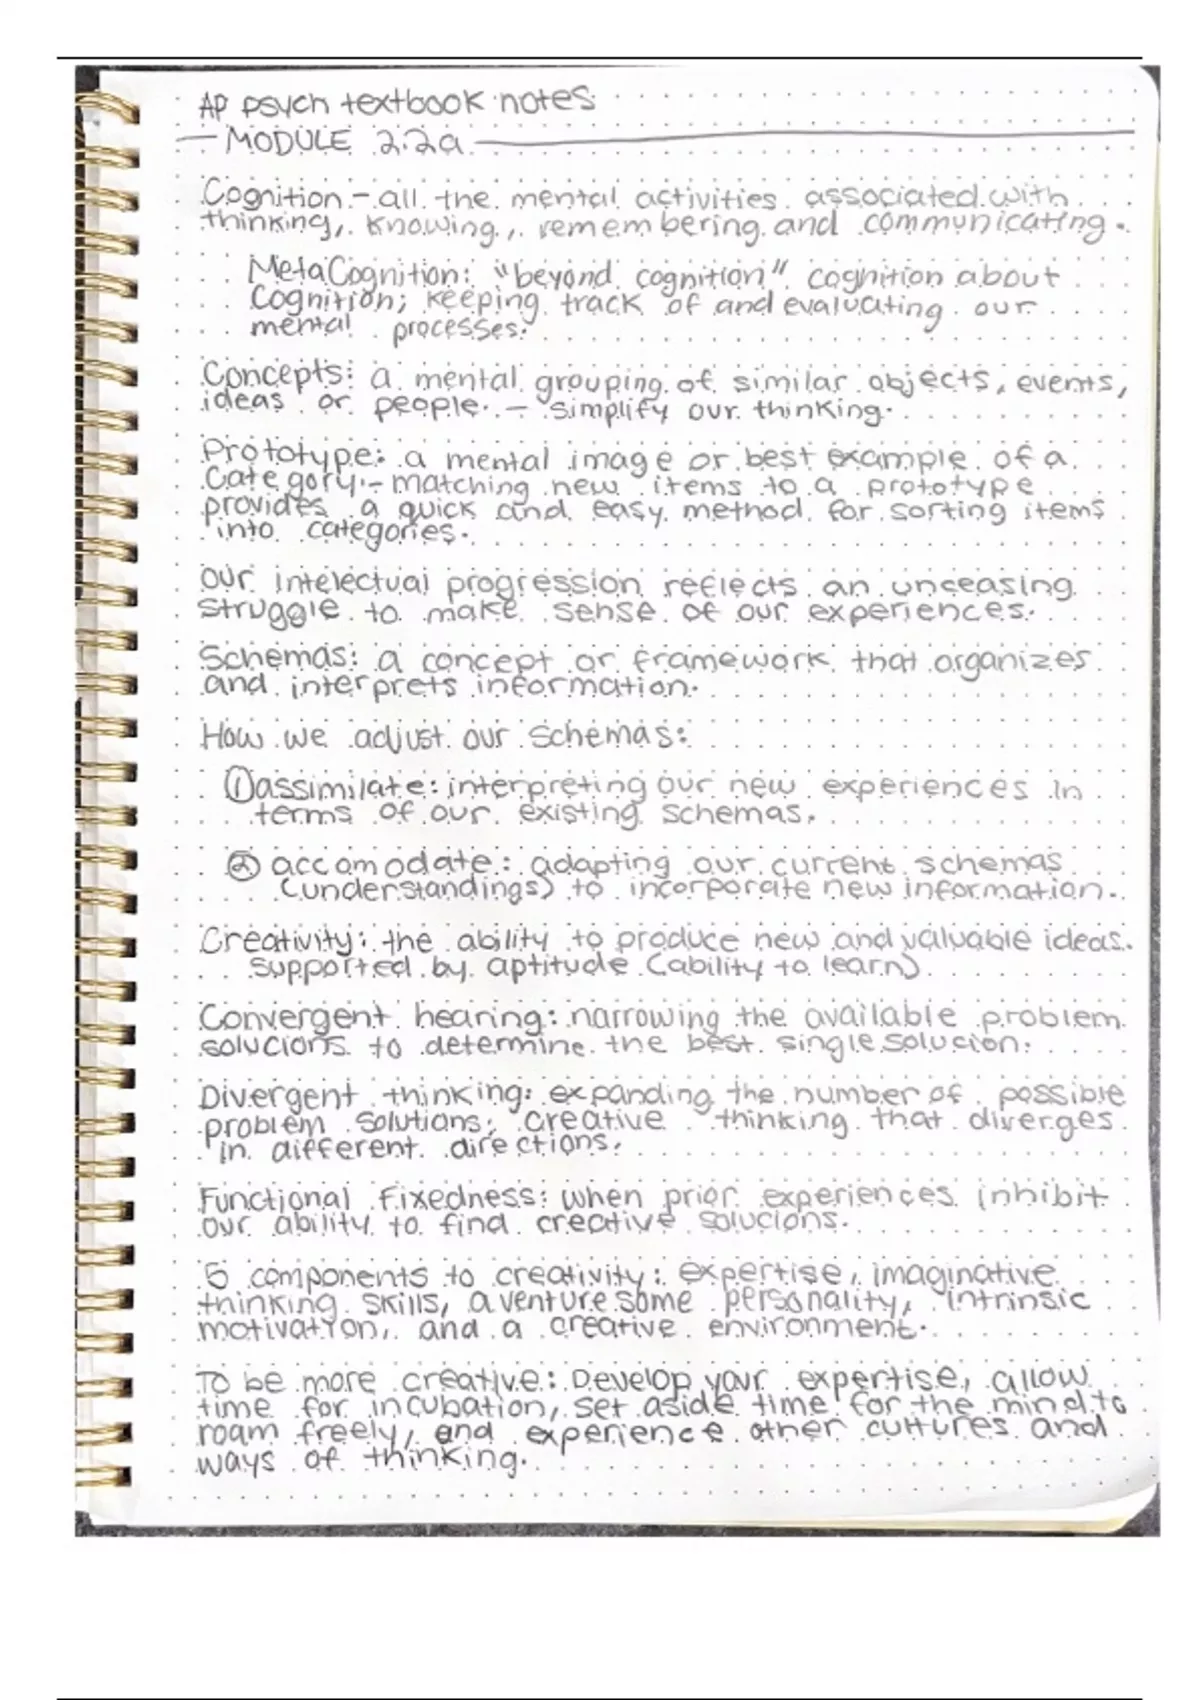 AP psych textbook notes
MODULE 2.2a
Cognition - all the mental activities associated with
thinking, knowing, remembering and communicating.
MetaCognition: "beyond cognition" cognition about
Cognition; keeping track of and evaluating our
mental processes.
Concepts: a mental grouping of similar objects, events,
ideas or people. - simplify our thinking.
Prototype: a mental image or best example of a
Category - matching new items to a prototype
provides a quick and easy method for sorting items
into categories.
our intelectual progression reflects an unceasing
struggle to make sense of our experiences.
Schemas: a concept or framework that organizes
and interprets information.
How we adjust our schemas:
① assimilate: interpreting our new experiences in
terms of our existing schemas.
② accomodate: adapting our current schemas
(understandings) to incorporate new information.
Creativity: the ability to produce new and valuable ideas.
supported by aptitude (ability to learn)
Convergent hearing: narrowing the available problem
solucions to determine the best single solucion.
Divergent thinking: expanding the number of possible
problem solutions; creative thinking that diverges
in different directions.
Functional fixedness: when prior experiences inhibit
our ability to find creative solucions.
5 components to creativity: expertise, imaginative
thinking skills, aventuresome personality, intrinsic
motivation, and a creative environment.
To be more creative: Develop your expertise, allow
time for incubation, set aside time for the mind to
roam freely, and experience other cultures and
ways of thinking.